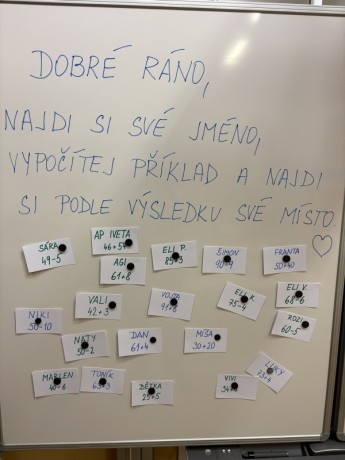 DOBRÉ RÁNO,
NAJDI SI SVÉ JMÉNO,
VYPOČÍTEJ PŘÍKLAD A NAJDI
SI PODLE VÝSLEDKU SVÉ MÍSTO
AP IVETA
SÁRA
49-5
ELI P.
ŠIMON
FRANTA
50+40
AGI
61+8
VALI
42+3
VOJTA
91+8
ELI K.
75-4
ELI V.
68-6
NIKI
50-10
ROZI
60-5
NATY
50-2
DAN
61+4
MÍŠA
30+20
MARLEN
40+6
TONÍK
BĚTKA
25+5
VIVI
23+4